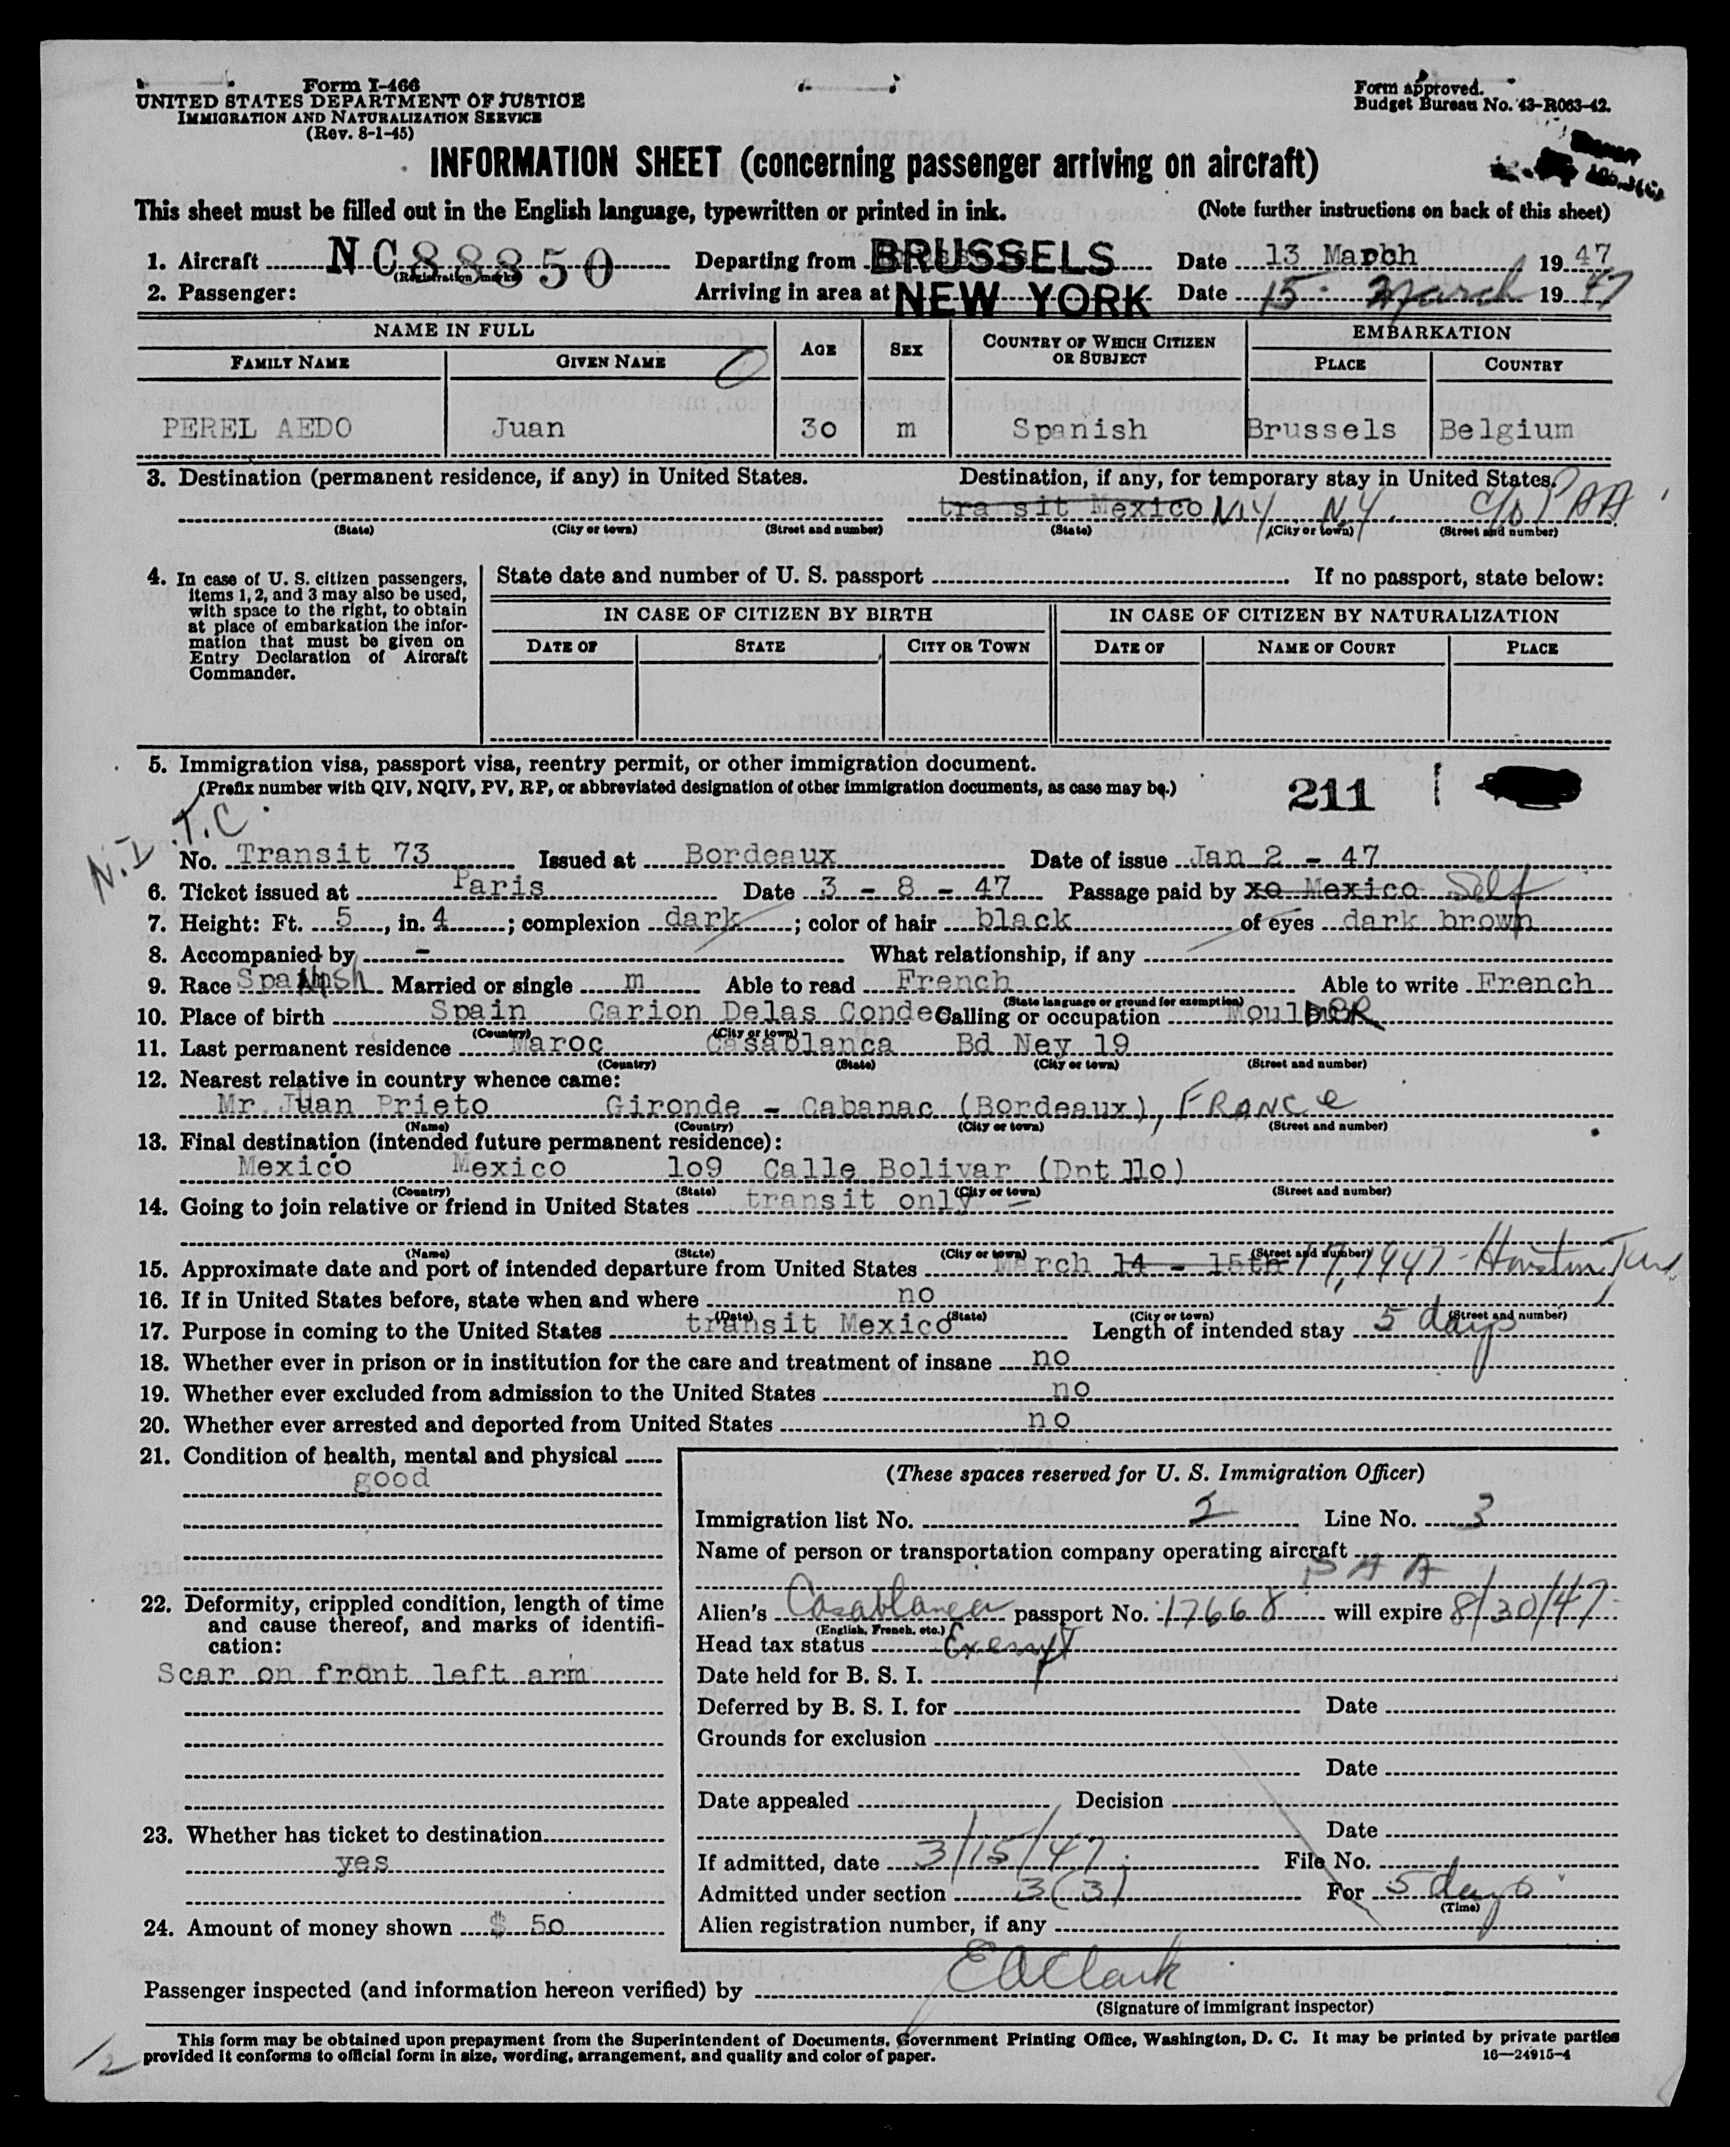 Form I-466
UNITED STATES DEPARTMENT OF JUSTICE
IMMIGRATION AND NATURALIZATION SERVICE
(Rev. 8-1-45)
Form approved.
Budget Bureau No. 43-R063-42.
INFORMATION SHEET (concerning passenger arriving on aircraft)
This sheet must be filled out in the English language, typewritten or printed in ink. (Note further instructions on back of this sheet)
1. Aircraft NC88850 (Registration marks) Departing from BRUSSELS Date 13 March 19 47
2. Passenger: Arriving in area at NEW YORK Date 15 March 19 47
NAME IN FULL AGE SEX COUNTRY OF WHICH CITIZEN OR SUBJECT EMBARKATION
FAMILY NAME GIVEN NAME PLACE COUNTRY
PEREL AEDO Juan 30 m Spanish Brussels Belgium
3. Destination (permanent residence, if any) in United States. Destination, if any, for temporary stay in United States.
tra sit Mexico N.Y. N.Y. c/o PAA
(State) (City or town) (Street and number) (State) (City or town) (Street and number)
4. In case of U. S. citizen passengers, items 1, 2, and 3 may also be used, with space to the right, to obtain at place of embarkation the information that must be given on Entry Declaration of Aircraft Commander.
State date and number of U. S. passport If no passport, state below:
IN CASE OF CITIZEN BY BIRTH IN CASE OF CITIZEN BY NATURALIZATION
DATE OF STATE CITY OR TOWN DATE OF NAME OF COURT PLACE
5. Immigration visa, passport visa, reentry permit, or other immigration document.
(Prefix number with QIV, NQIV, PV, RP, or abbreviated designation of other immigration documents, as case may be.) 211
N.I. T.C.
No. Transit 73 Issued at Bordeaux Date of issue Jan 2 - 47
6. Ticket issued at Paris Date 3 - 8 - 47 Passage paid by xo Mexico Self
7. Height: Ft. 5, in. 4; complexion dark; color of hair black of eyes dark brown
8. Accompanied by - What relationship, if any
9. Race Spanish Married or single m Able to read French Able to write French
(State language or ground for exemption)
10. Place of birth Spain Carion Delas Condes Calling or occupation Moulder
(Country) (City or town)
11. Last permanent residence Maroc Casablanca Bd Ney 19
(Country) (State) (City or town) (Street and number)
12. Nearest relative in country whence came:
Mr. Juan Prieto Gironde - Cabanac (Bordeaux), FRANCE
(Name) (Country) (City or town) (Street and number)
13. Final destination (intended future permanent residence):
Mexico Mexico 1o9 Calle Bolivar (Dpt 11o)
(Country) (State) (City or town) (Street and number)
14. Going to join relative or friend in United States transit only
(Name) (State) (City or town) (Street and number)
15. Approximate date and port of intended departure from United States March 14 - 15th 17, 1947 - Houston, Tex.
16. If in United States before, state when and where no
(Date) (State) (City or town) (Street and number)
17. Purpose in coming to the United States transit Mexico Length of intended stay 5 days
18. Whether ever in prison or in institution for the care and treatment of insane no
19. Whether ever excluded from admission to the United States no
20. Whether ever arrested and deported from United States no
21. Condition of health, mental and physical
good
22. Deformity, crippled condition, length of time and cause thereof, and marks of identification:
Scar on front left arm
23. Whether has ticket to destination
yes
24. Amount of money shown $ 50
(These spaces reserved for U. S. Immigration Officer)
Immigration list No. 2 Line No. 3
Name of person or transportation company operating aircraft
P A A
Alien's Casablanca passport No. 17668 will expire 8/30/47
(English, French, etc.)
Head tax status Exempt
Date held for B. S. I.
Deferred by B. S. I. for Date
Grounds for exclusion
Date
Date appealed Decision
Date
If admitted, date 3/15/47 File No.
Admitted under section 3(3) For 5 days
(Time)
Alien registration number, if any
Passenger inspected (and information hereon verified) by E A Clark
(Signature of immigrant inspector)
This form may be obtained upon prepayment from the Superintendent of Documents, Government Printing Office, Washington, D. C. It may be printed by private parties
provided it conforms to official form in size, wording, arrangement, and quality and color of paper. 16—24915-4
12